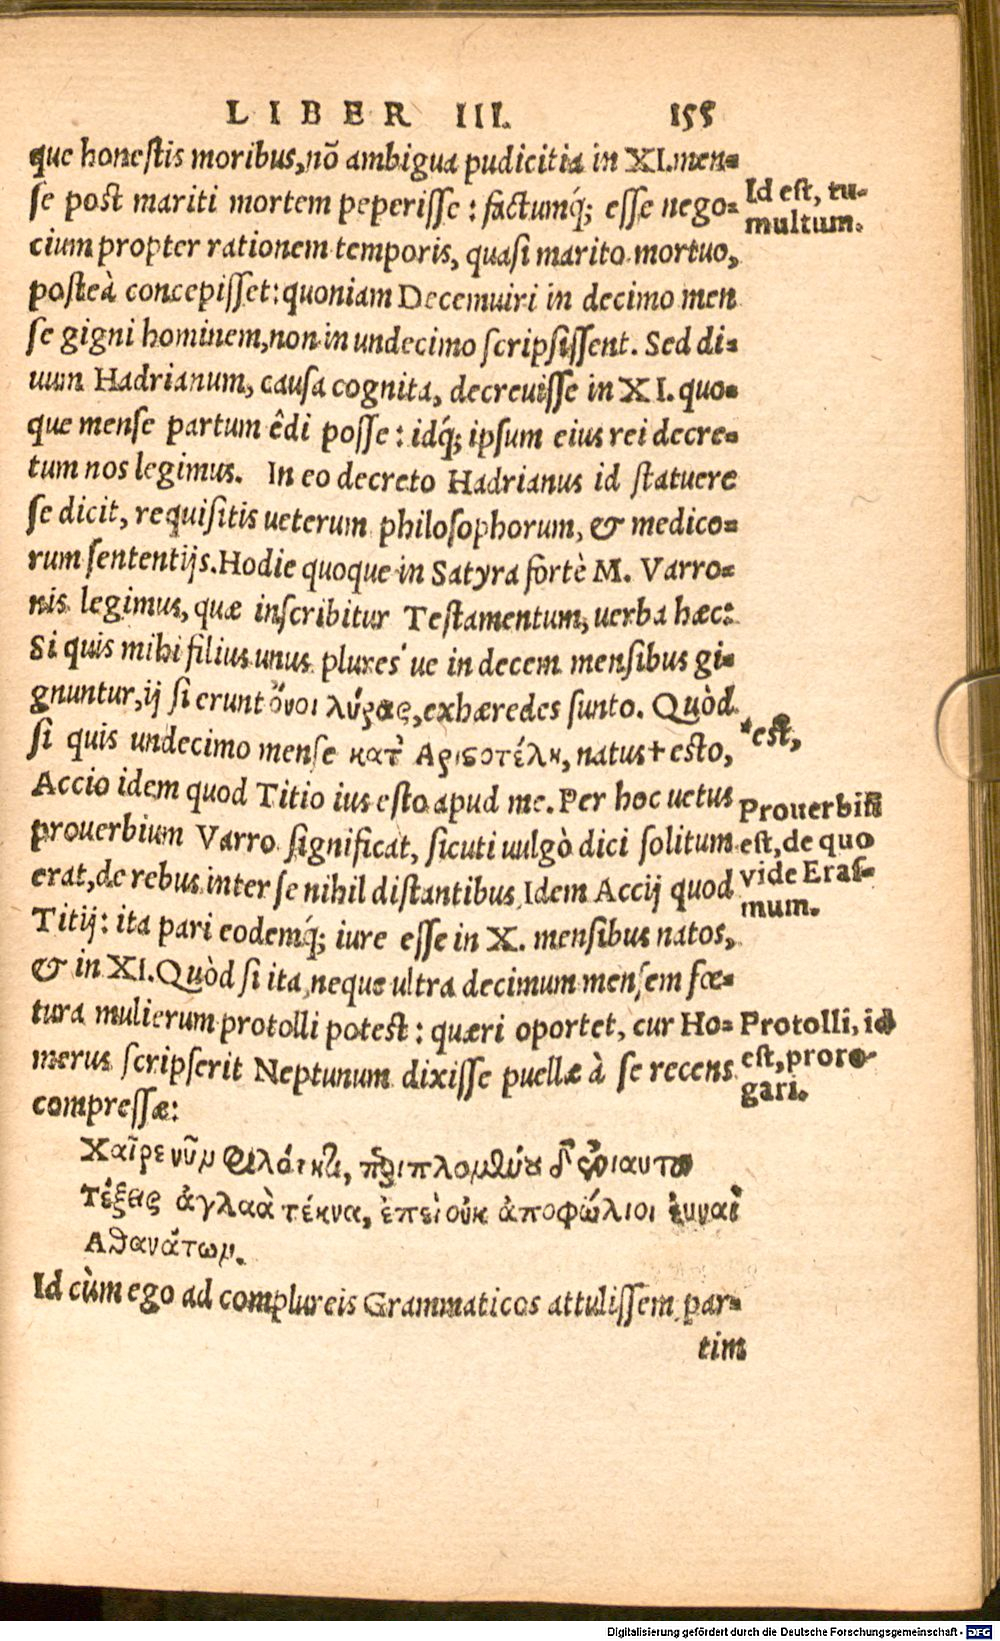 LIBER III. 155
que honestis moribus, nō ambigua pudicitia in XI. men=
se post mariti mortem peperisse: factumq́; esse nego=
cium propter rationem temporis, quasi marito mortuo,
posteà concepisset: quoniam Decemuiri in decimo men
se gigni hominem, non in undecimo scripsissent. Sed di=
uum Hadrianum, causa cognita, decreuisse in XI. quo=
que mense partum êdi posse: idq́; ipsum eius rei decre=
tum nos legimus. In eo decreto Hadrianus id statuere
se dicit, requisitis ueterum philosophorum, & medico=
rum sententijs. Hodie quoque in Satyra fortè M. Varro=
nis legimus, quæ inscribitur Testamentum, uerba hæc:
Si quis mihi filius unus plures'ue in decem mensibus gi=
gnuntur, ij si erunt ὄνοι λύρας, exhæredes sunto. Quòd
si quis undecimo mense κατ' Αριστοτέλη, natus † esto,
Accio idem quod Titio ius esto apud me. Per hoc uetus
prouerbium Varro significat, sicuti uulgò dici solitum
erat, de rebus inter se nihil distantibus, Idem Accij quod
Titij: ita pari eodemq́; iure esse in X. mensibus natos,
& in XI. Quòd si ita neque ultra decimum mensem fœ=
tura mulierum protolli potest: quæri oportet, cur Ho=
merus scripserit Neptunum dixisse puellæ à se recens
compressæ:
Χαῖρε νῦν φιλότητι, περιπλομένου δ' ἐνιαυτοῦ
Τέξεις ἀγλαὰ τέκνα, ἐπεὶ οὐκ ἀποφώλιοι ἐυναὶ
Αθανάτων.
Id cùm ego ad complureis Grammaticos attulissem, par=
tim
Id est, tu-
multum.
*est,
Prouerbiū
est, de quo
vide Eras-
mum.
Protolli, id
est, proro-
gari.
Digitalisierung gefördert durch die Deutsche Forschungsgemeinschaft - DFG